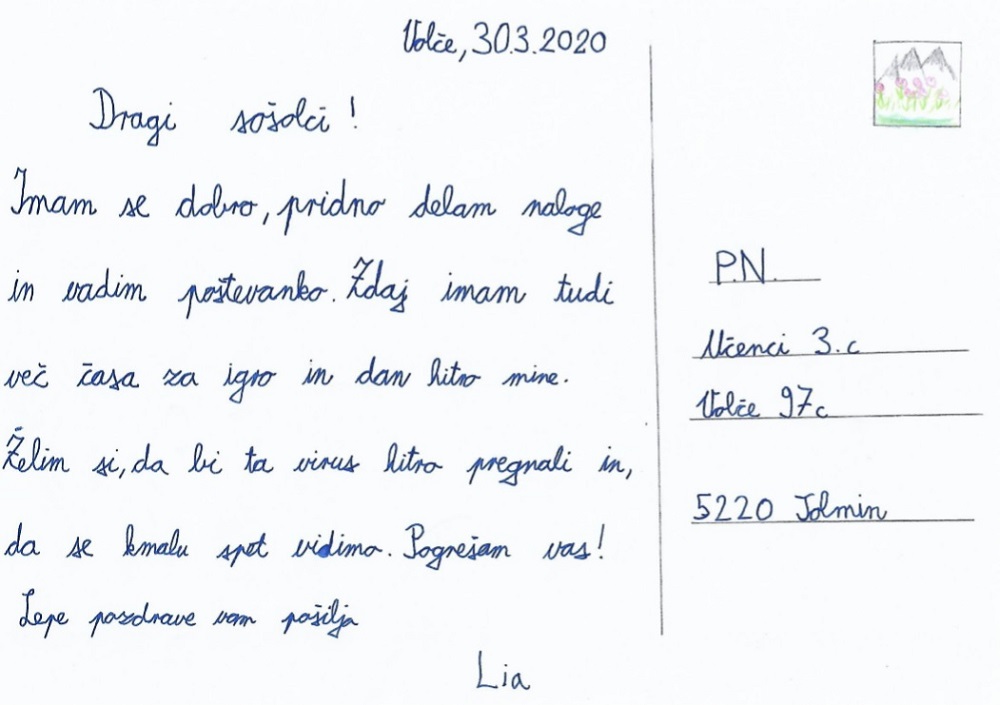 Volče, 30.3.2020
Dragi sošolci!
Imam se dobro, pridno delam naloge
in vadim poštevanko. Zdaj imam tudi
več časa za igro in dan hitro mine.
Želim si, da bi ta virus hitro pregnali in,
da se kmalu spet vidimo. Pogrešam vas!
Lepe pozdrave vam pošilja
Lia
P.N.
Učenci 3.c
Volče 97c
5220 Tolmin